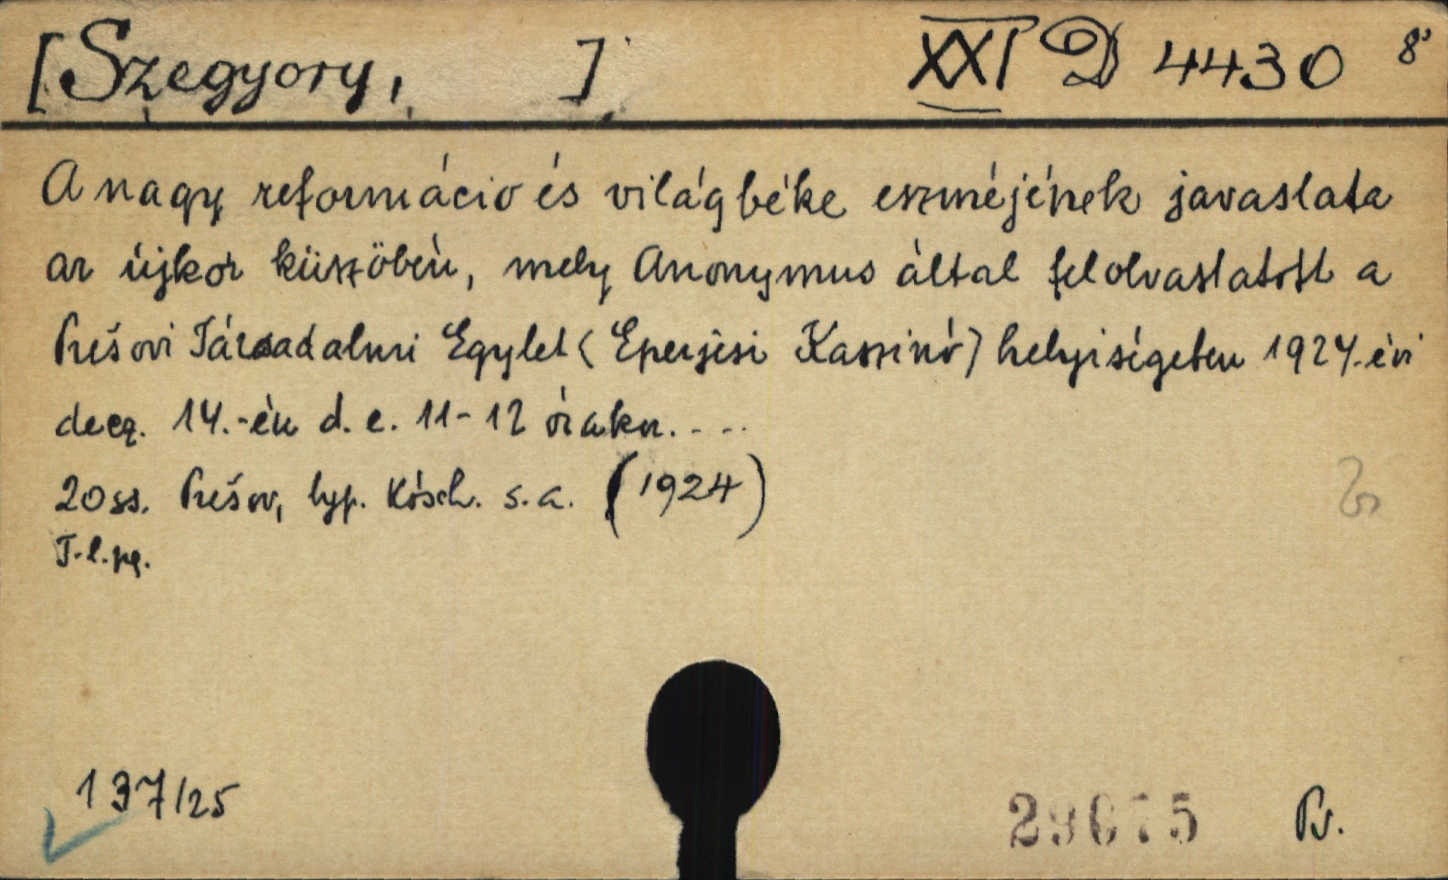 [Szegyory, ] XXI D 4430 8°
A nagy reformáció és világbéke eszméjének javaslata
az újkor küszöbén, mely Anonymus által felolvastatott a
Prešovi Társadalmi Egylet (Eperjesi Kaszinó) helyiségeben 1924. évi
decz. 14.-én d. e. 11-12 órakor. . . .
20 ss. Prešov, typ. Kósch. s. a. (1924)
T. l. pg.
137/25
29675 Pr.